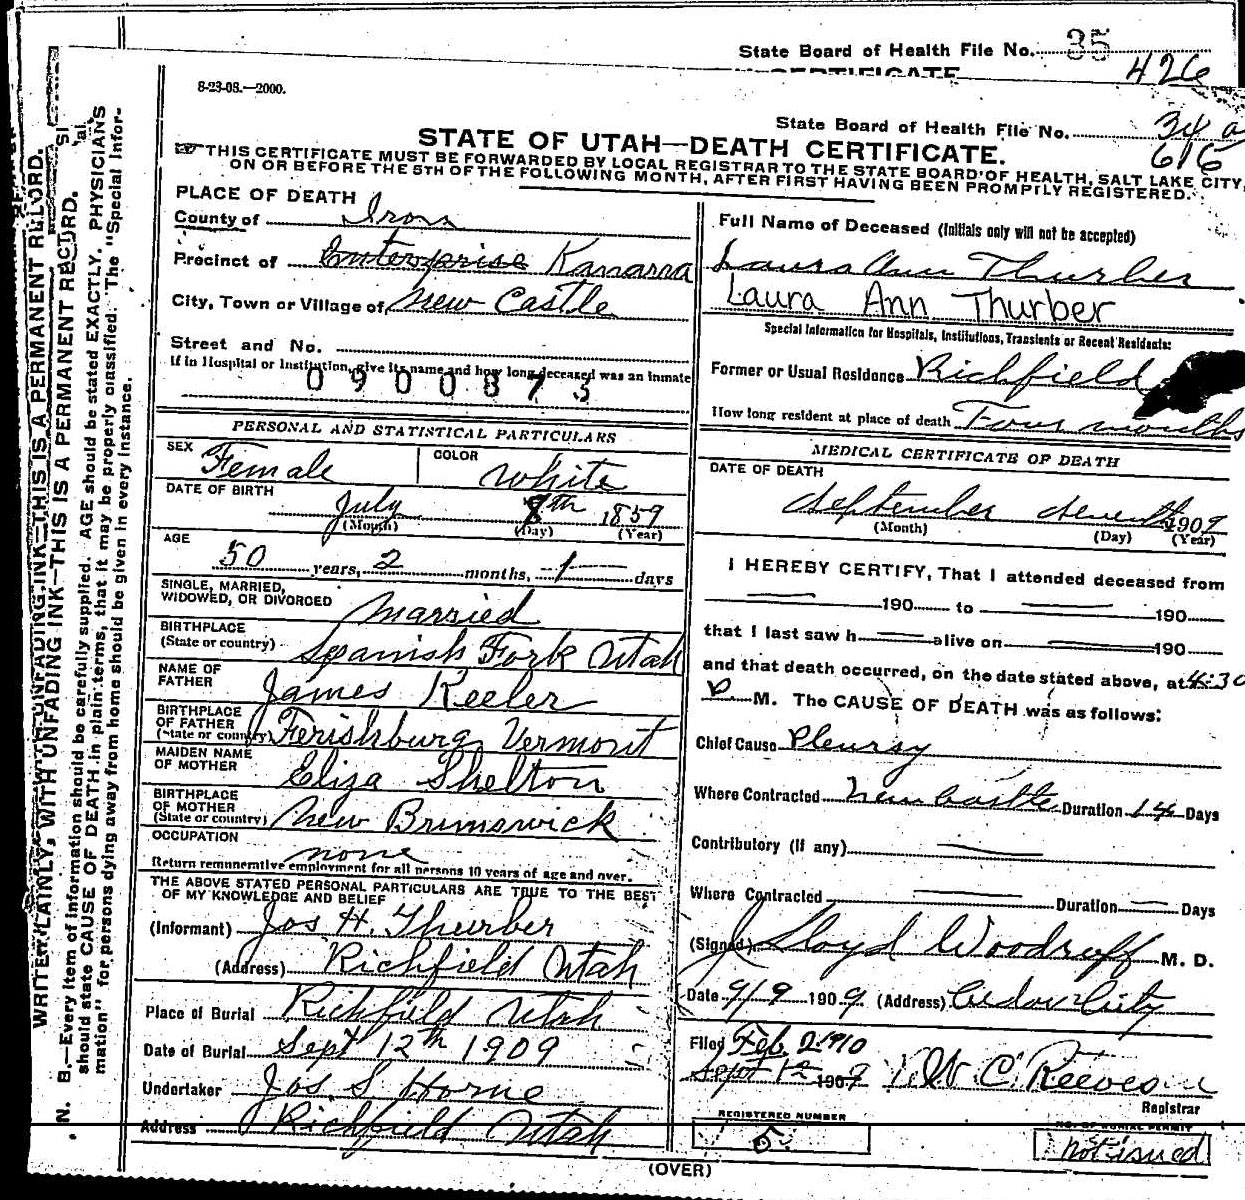 State Board of Health File No. 35
426
CERTIFICATE
8-23-08.—2000.
State Board of Health File No. 34 a
616
STATE OF UTAH—DEATH CERTIFICATE.
THIS CERTIFICATE MUST BE FORWARDED BY LOCAL REGISTRAR TO THE STATE BOARD OF HEALTH, SALT LAKE CITY,
ON OR BEFORE THE 5TH OF THE FOLLOWING MONTH, AFTER FIRST HAVING BEEN PROMPTLY REGISTERED.
PLACE OF DEATH
County of Iron
Precinct of Enterprise Kanarra
City, Town or Village of New Castle
Street and No.
If in Hospital or Institution, give its name and how long deceased was an inmate
0900873
PERSONAL AND STATISTICAL PARTICULARS
SEX Female COLOR White
DATE OF BIRTH July 7th 1859
(Month) (Day) (Year)
AGE 50 years, 2 months, 1 days
SINGLE, MARRIED,
WIDOWED, OR DIVORCED Married
BIRTHPLACE
(State or country) Spanish Fork Utah
NAME OF
FATHER James Keeler
BIRTHPLACE
OF FATHER
(State or country) Ferishburg Vermont
MAIDEN NAME
OF MOTHER Eliza Shelton
BIRTHPLACE
OF MOTHER
(State or country) New Brunswick
OCCUPATION none
Return remunerative employment for all persons 10 years of age and over.
THE ABOVE STATED PERSONAL PARTICULARS ARE TRUE TO THE BEST
OF MY KNOWLEDGE AND BELIEF
(Informant) Jos H. Thurber
(Address) Richfield Utah
Place of Burial Richfield Utah
Date of Burial Sept 12th 1909
Undertaker Jos. S. Horne
Address Richfield Utah
Full Name of Deceased (Initials only will not be accepted)
Laura Ann Thurber
Laura Ann Thurber
Special Information for Hospitals, Institutions, Transients or Recent Residents:
Former or Usual Residence Richfield
How long resident at place of death Four months
MEDICAL CERTIFICATE OF DEATH
DATE OF DEATH
September seventh 1909
(Month) (Day) (Year)
I HEREBY CERTIFY, That I attended deceased from
190 to 190
that I last saw h alive on 190
and that death occurred, on the date stated above, at 4:30
P. M. The CAUSE OF DEATH was as follows:
Chief Cause Pleursy
Where Contracted Newcastle Duration 14 Days
Contributory (if any)
Where Contracted Duration Days
(Signed) J Lloyd Woodruff M. D.
Date 9/9 1909. (Address) Cedar City
Filed Feb 2 1910
Sept 12 1909 C. Reeves
Registrar
REGISTERED NUMBER
5.
NO. OF BURIAL PERMIT
not issued
(OVER)
WRITE PLAINLY, WITH UNFADING INK—THIS IS A PERMANENT RECORD.
N. B.—Every item of information should be carefully supplied. AGE should be stated EXACTLY. PHYSICIANS
should state CAUSE OF DEATH in plain terms, that it may be properly classified. The "Special Infor-
mation" for persons dying away from home should be given in every instance.